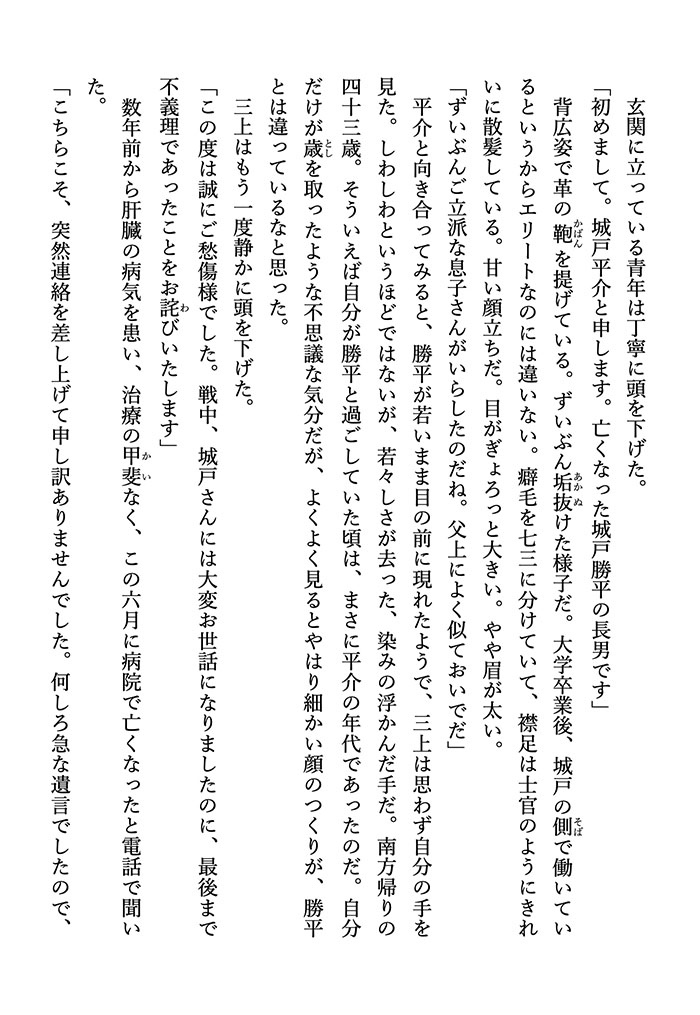 玄関に立っている青年は丁寧に頭を下げた。
「初めまして。城戸平介と申します。亡くなった城戸勝平の長男です」
背広姿で革の鞄を提げている。ずいぶん垢抜けた様子だ。大学卒業後、城戸の側で働いてい
るというからエリートなのには違いない。癖毛を七三に分けていて、襟足は士官のようにきれ
いに散髪している。甘い顔立ちだ。目がぎょろっと大きい。やや眉が太い。
「ずいぶんご立派な息子さんがいらしたのだね。父上によく似ておいでだ」
平介と向き合ってみると、勝平が若いまま目の前に現れたようで、三上は思わず自分の手を
見た。しわしわというほどではないが、若々しさが去った、染みの浮かんだ手だ。南方帰りの
四十三歳。そういえば自分が勝平と過ごしていた頃は、まさに平介の年代であったのだ。自分
だけが歳を取ったような不思議な気分だが、よくよく見るとやはり細かい顔のつくりが、勝平
とは違っているなと思った。
三上はもう一度静かに頭を下げた。
「この度は誠にご愁傷様でした。戦中、城戸さんには大変お世話になりましたのに、最後まで
不義理であったことをお詫びいたします」
数年前から肝臓の病気を患い、治療の甲斐なく、この六月に病院で亡くなったと電話で聞い
た。
「こちらこそ、突然連絡を差し上げて申し訳ありませんでした。何しろ急な遺言でしたので、